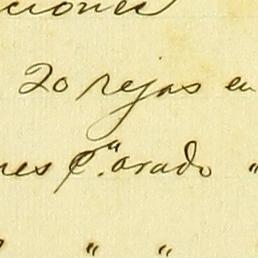 ciones
20 rejas en
nes p.ª arado "
" "